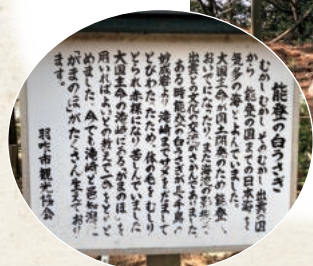 能登の白うさぎ
むかしむかし そのむかし 出雲の国
から 能登の国までの日本海を
気多の海とよんでいました。
大国主命が国土開発のため能登へ
おいでになったり、また海流の
出雲との文化の交流がさかんでありました。
ある時 能登の白うさぎが
妙成岩より 滝崎までサメをだまして
とびわたったため、体の毛をむしり
とられ赤裸になり苦しんでいました
大国主命の滝崎にある「がまのほ」を
用いればよいとの教えで
めました。今でも滝崎や邑知潟に
「がまのほ」がたくさん生えており
ます。
羽咋市観光協会